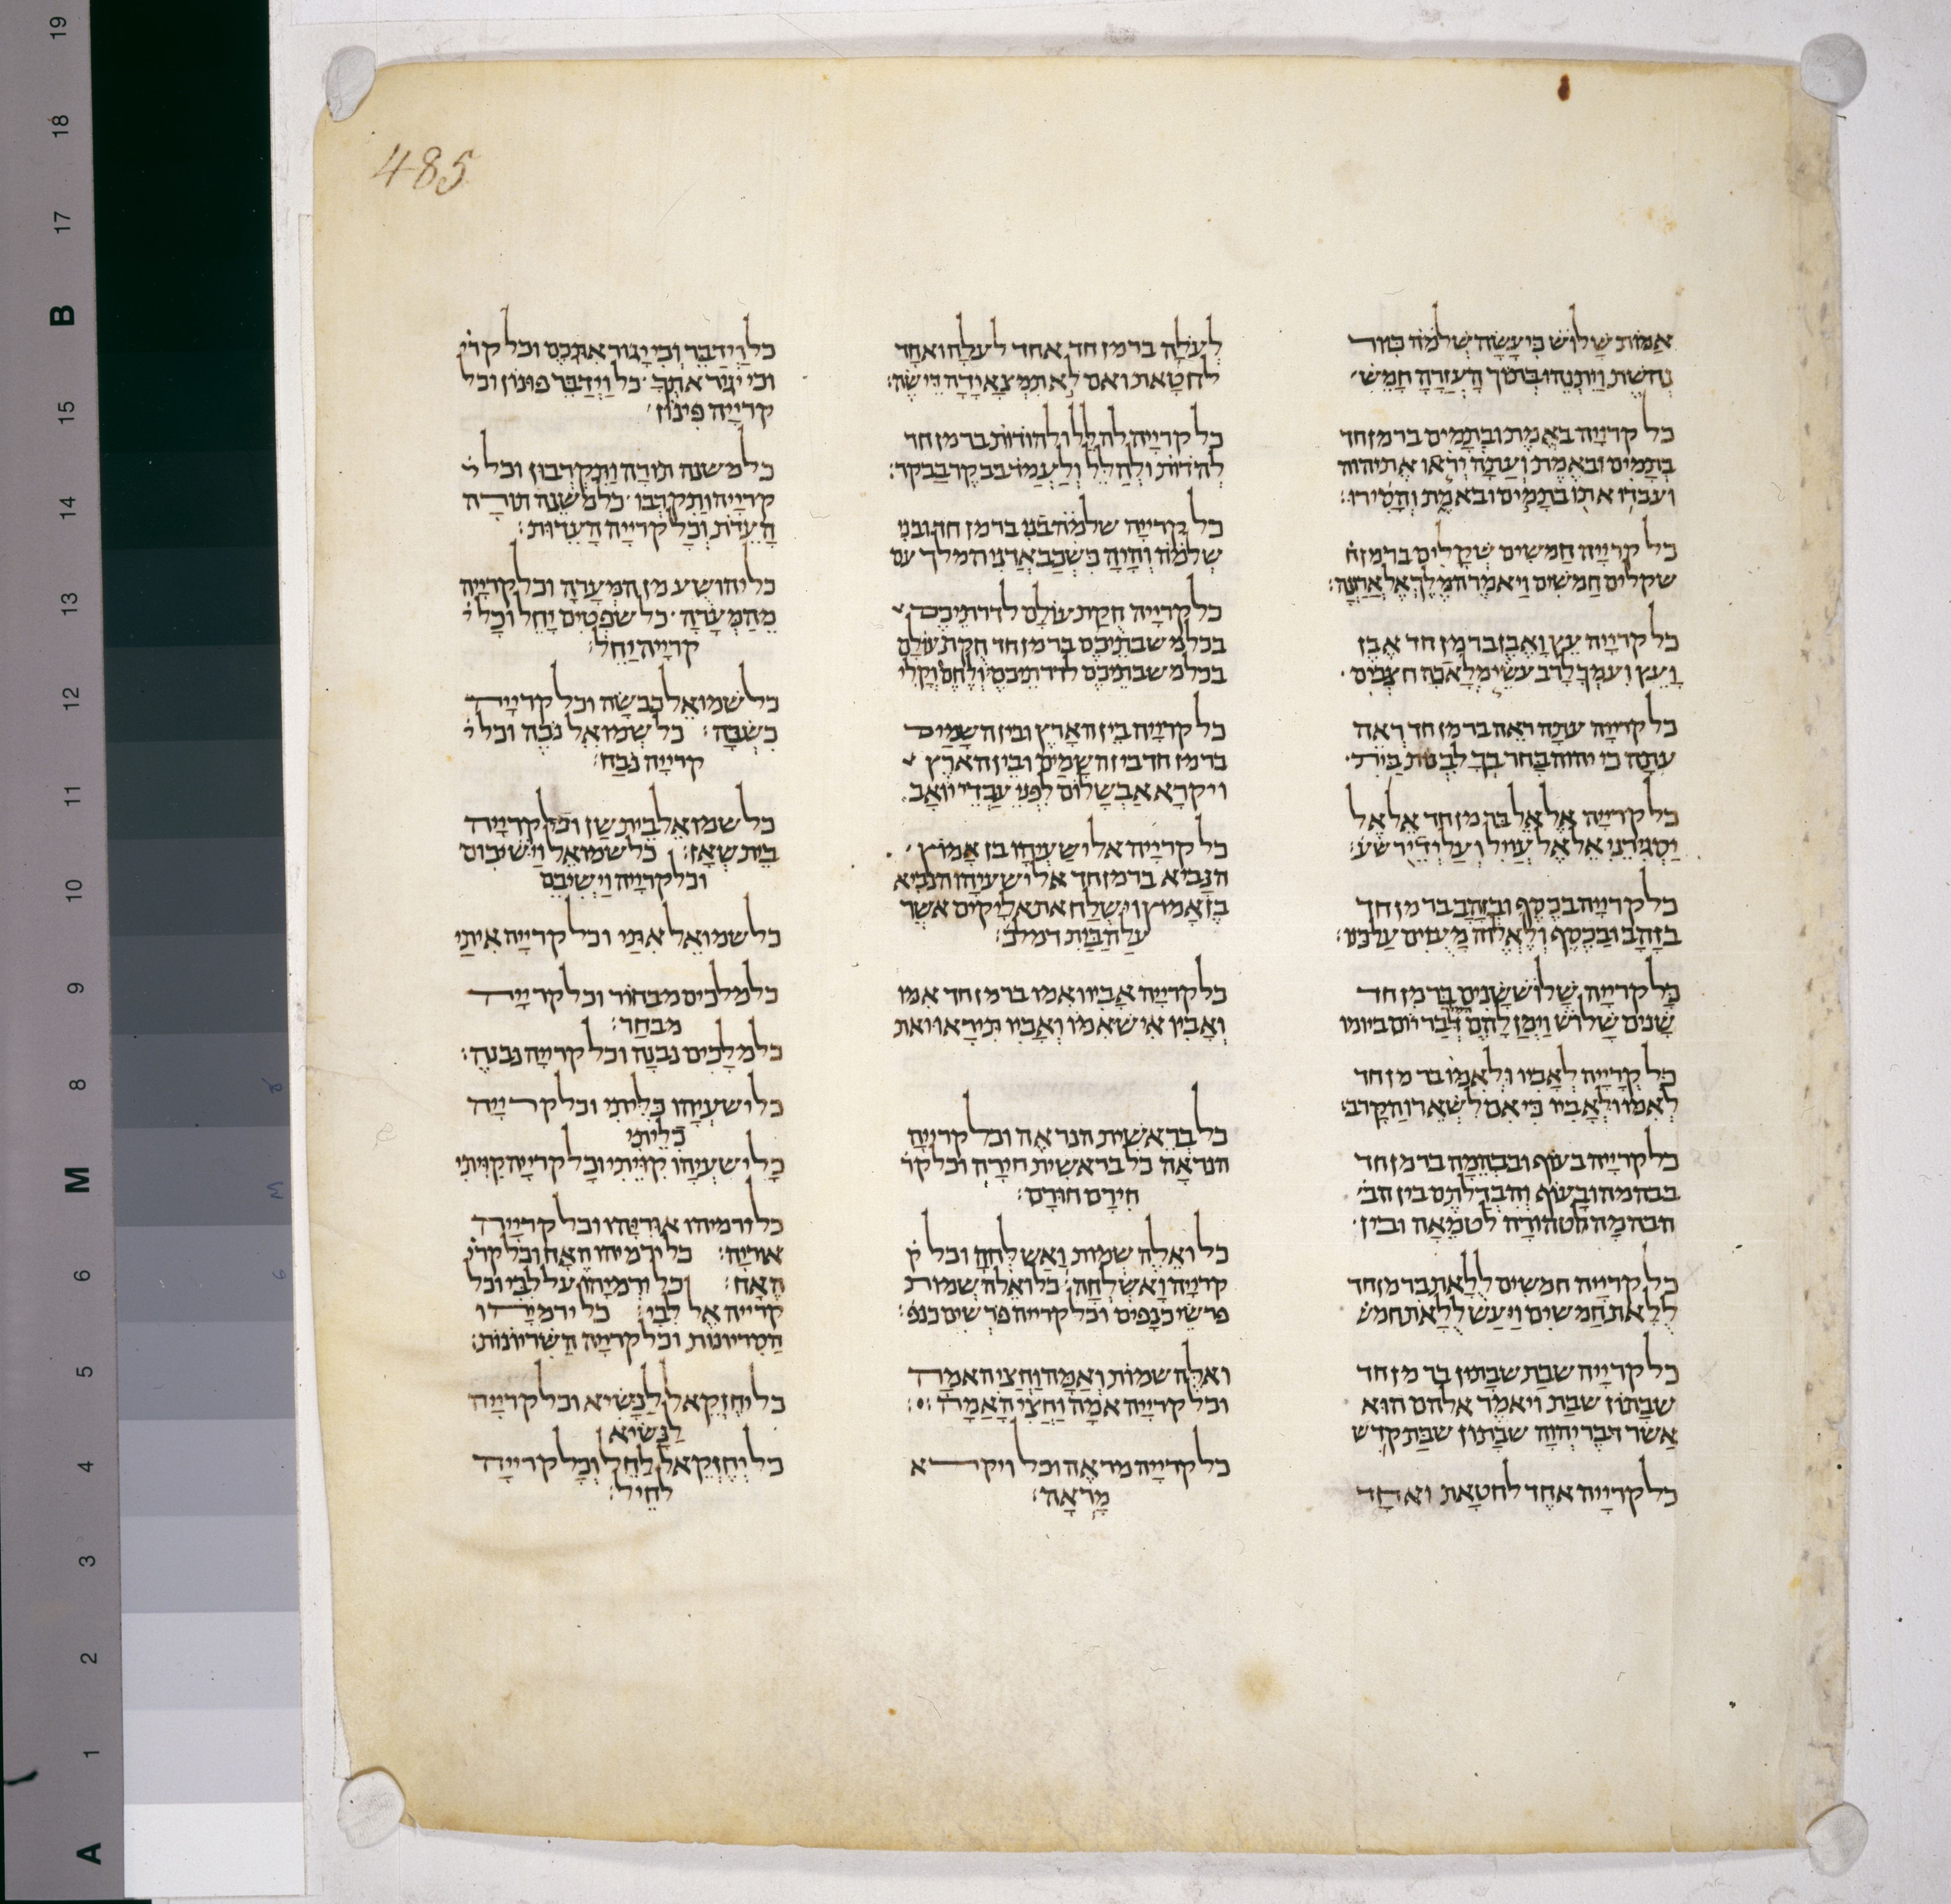 485
אמות שלוש כי עשה שלמה כיור
נחשת ויתנהו בתוך העזרה חמש
כל קרייה באמת ובתמים בר מן חד
בתמים ובאמת ועתה יראו את יהוה
ועבדו אתו בתמים ובאמת והסירו׃
כל קרייה חמשים שקלים בר מן ח
שקלים חמשים ויאמר המלך אל ארונה׃
כל קרייה עץ ואבן בר מן חד אבן
ועץ ועמך לרב עשי מלאכה חצבים
כל קרייה עתה ראה בר מן חד ראה
עתה כי יהוה בחר בך לבנות בית
כל קרייה אל אל בר מן חד אל אל
יסגירני אל אל עויל ועל ידי רשע׃
כל קרייה בכסף ובזהב בר מן חד
בזהב ובכסף ולאלה מעזים על כנו׃
כל קרייה שלוש שנים בר מן חד
שנים שלוש וימן להם דבר יום ביומו
כל קרייה לאביו ולאמו בר מן חד
לאמו ולאביו כי אם לשארו הקרב׃
כל קרייה בעוף ובבהמה בר מן חד
בבהמה ובעוף והבדלתם בין הב
הבהמה הטהורה לטמאה ובין
כל קרייה חמשים ללאת בר מן חד
ללאת חמשים ויעש ללאת חמש
כל קרייה שבת שבתון בר מן חד
שבתון שבת ויאמר אלהם הוא
אשר דבר יהוה שבתון שבת קדש
כל קרייה אחד לחטאת ואחד
לעלה בר מן חד אחד לעלה ואחד
לחטאת ואם לא תמצא ידה די שה׃
כל קרייה להלל ולהודות בר מן חד
להודות ולהלל ולעמד בבקר בבקר׃
כל קרייה שלמה בני בר מן חד ובני
שלמה והיה כשכב אדני המלך עם
כל קרייה חקת עולם לדרתיכם
בכל משבתיכם בר מן חד חקת עולם
בכל משבתיכם לדרתיכם ולחם וקלי
כל קרייה בין הארץ ובין השמים
בר מן חד בין השמים ובין הארץ
ויקרא אבשלום לפני עבדי יואב
כל קרייה אל ישעיהו בן אמוץ
הנביא בר מן חד אל ישעיהו הנביא
בן אמוץ וישלח את אליקים אשר
על הבית דמלכ׃
כל קרייה אביו ואמו בר מן חד אמו
ואביו איש אמו ואביו תיראו ואת
כל בראשית הנראה וכל קרייה
הנראה כל בראשית חירה וכל קר
חירם חורם׃
כל ואלה שמות ואשלחה וכל ק
קרייה ואשלחה׃ כל ואלה שמות
פרשי כנפים וכל קרייה פרשים כנפ׃
ואלה שמות ואמה וחצי האמה
וכל קרייה אמה וחצי האמה׃
כל קרייה מראה וכל ויקרא
מראה׃
כל וידבר וכי יגור אתכם וכל קרי
וכי יגור אתך כל וידבר פונון וכל
קרייה פינון
כל משנה תורה ותקרבון וכל
קרייה ותקרבו כל משנה תורה
העדת וכל קרייה העדות׃
כל יהושע מן המערה וכל קרייה
מהמערה כל שפטים יחל וכל
קרייה יחל׃
כל שמואל כבשה וכל קרייה
כשבה׃ כל שמואל נבה וכל
קרייה נבח׃
כל שמואל בית שן וכל קרייה
בית שאן׃ כל שמואל וישיבום
וכל קרייה וישיבם
כל שמואל אתי וכל קרייה איתי
כל מלכים מבחור וכל קרייה
מבחר׃
כל מלכים נבנה וכל קרייה נבנה׃
כל ישעיהו כליתי וכל קרייה
כליתי
כל ישעיהו קויתי וכל קרייה קויתי
כל ירמיהו אוריהו וכל קרייה
אוריה׃ כל ירמיהו האח וכל קרי
האח׃ וכל ירמיהו על לבי וכל
קרייה אל לבי׃ כל ירמיהו
הסריונות וכל קרייה השריונות׃
כל יחזקאל לנשיא וכל קרייה
לנשיא
כל יחזקאל לחל וכל קרייה
לחיל׃